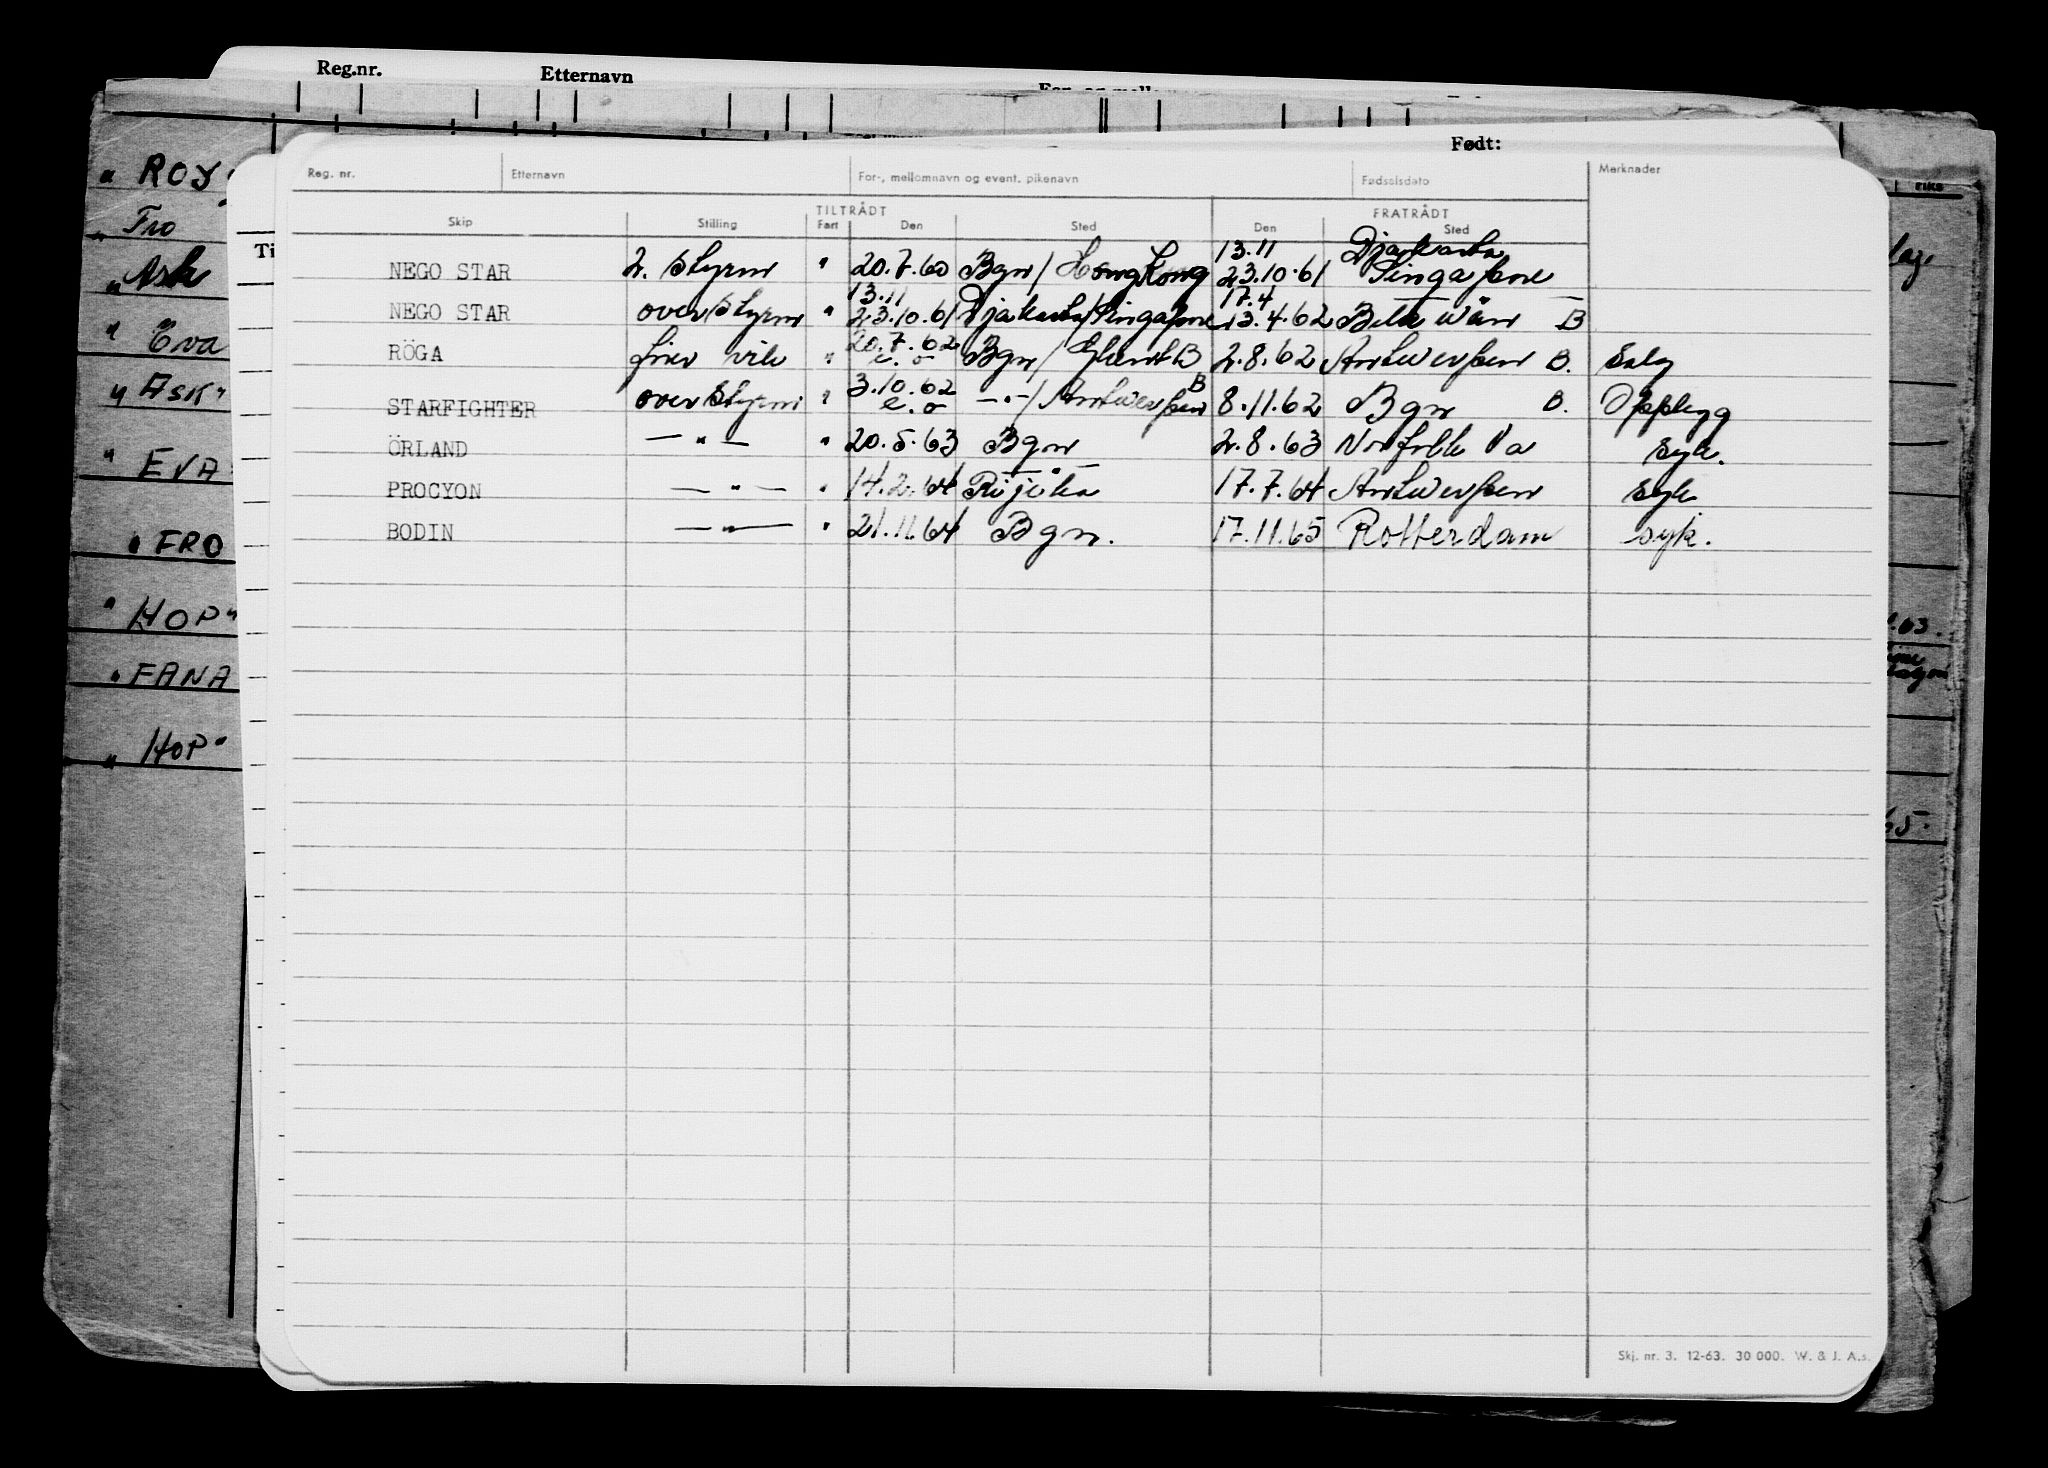 Reg.nr. Etternavn
Født:
Reg. nr. Etternavn For-, mellomnavn og event. pikenavn Fødselsdato Merknader
TILTRÅDT FRATRÅDT
Skip Stilling Fart Den Sted Den Sted
13.11 Djakarta
NEGO STAR 2. Styrm " 20.7.60 Bgn/HongKong 23.10.61 Singapore
13.11 17.4
NEGO STAR overstyrm " 23.10.61 Djakarta/Singapore 13.4.62 B
20.7.62
RÖGA " e.o Bgn/ B 2.8.62 Antwerpen B. Salg
3.10.62 B
STARFIGHTER overstyrm " e.o -"-/Antwerpen 8.11.62 Bgn B. Opplegg
ÖRLAND -"- " 20.5.63 Bgn 2.8.63 Norfolk Va syk.
PROCYON -"- " 14.2.64 Rijeka 17.7.64 Antwerpen syk
BODIN -"- " 21.11.64 Bgn. 17.11.65 Rotterdam syk.
Skj. nr. 3. 12-63. 30 000. W. & J. A.s.
" ROY
" Fro
" Ask
" Eva
" ASK"
" EVA
" FRO
" HOP"
" FANA
" HOP"
Ti